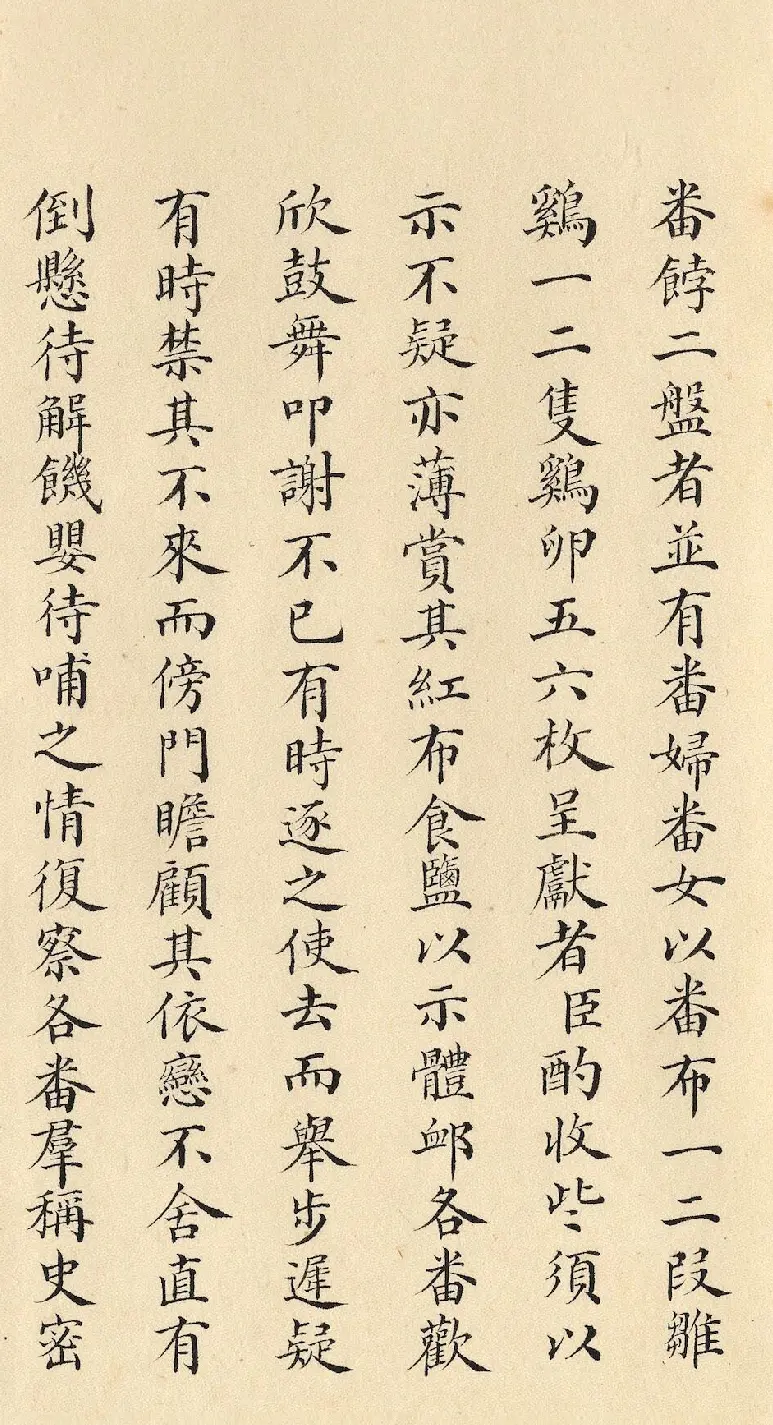 番餑二盤者並有番婦番女以番布一二段雛
鷄一二隻鷄卵五六枚呈獻者臣酌收些須以
示不疑亦薄賞其紅布食鹽以示體卹各番歡
欣鼓舞叩謝不已有時逐之使去而舉步遲疑
有時禁其不來而傍門瞻顧其依戀不舍直有
倒懸待解饑嬰待哺之情復察各番羣稱史密